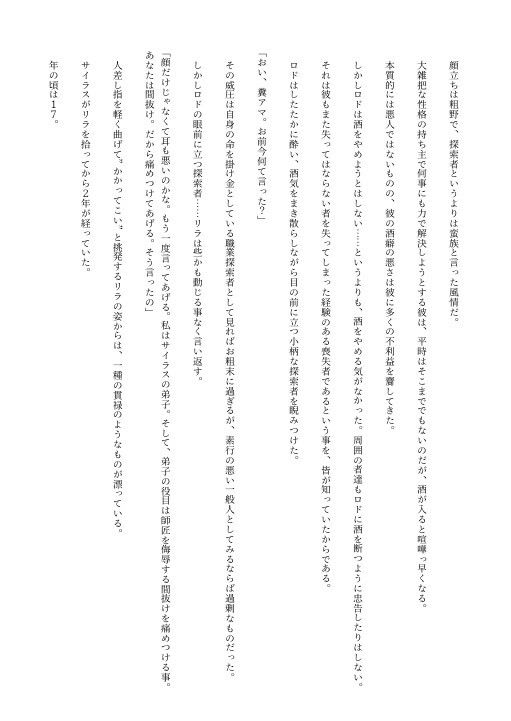 顔立ちは粗野で、探索者というよりは蛮族と言った風情だ。
大雑把な性格の持ち主で何事にも力で解決しようとする彼は、平時はそこまででもないのだが、酒が入ると喧嘩っ早くなる。
本質的には悪人ではないものの、彼の酒癖の悪さは彼に多くの不利益を齎してきた。
しかしロドは酒をやめようとはしない……というよりも、酒をやめる気がなかった。周囲の者達もロドに酒を断つように忠告したりはしない。
それは彼もまた失ってはならない者を失ってしまった経験のある喪失者であるという事を、皆が知っていたからである。
ロドはしたたかに酔い、酒気をまき散らしながら目の前に立つ小柄な探索者を睨みつけた。
「おい、糞アマ。お前今何て言った？」
その威圧は自身の命を掛け金としている職業探索者として見ればお粗末に過ぎるが、素行の悪い一般人としてみるならば過剰なものだった。
しかしロドの眼前に立つ探索者……リラは些かも動じる事なく言い返す。
「顔だけじゃなくて耳も悪いのかな。もう一度言ってあげる。私はサイラスの弟子。そして、弟子の役目は師匠を侮辱する間抜けを痛めつける事。
あなたは間抜け。だから痛めつけてあげる。そう言ったの」
人差し指を軽く曲げて〝かかってこい〟と挑発するリラの姿からは、一種の貫禄のようなものが漂っている。
サイラスがリラを拾ってから２年が経っていた。
年の頃は１７。